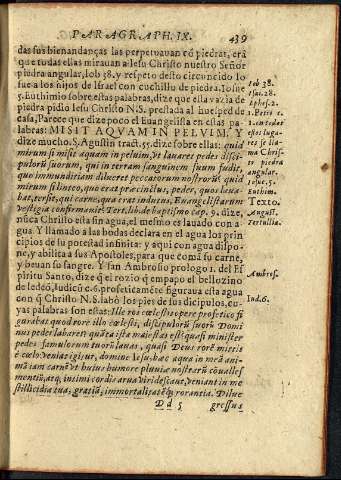 PARAGRAPH. IX. 439
das sus bienandanças las perpetuauan cō piedras, erā
que todas ellas mirauan a Iesu Christo nuestro Señor
piedra angular, Iob 38. y respeto desto circuncido Io
sue a los hijos de Israel con cuchillo de piedra, Iosue
5. Euthimio sobre estas palabras, dize que esta vazia de
piedra pidio Iesu Christo N.S. prestada al huesped de
casa, Parece que dize poco el Euangelista en estas pa
labras: MISIT AQVAM IN PELVIM, Y
dize mucho. S. Agustin tract. 55. dize sobre ellas: quid
mirum si misit aquam in peluim, vt lauaret pedes disci-
pulorū suorum, qui in terram sanguinem suum fudit,
quo immundiriam dilueret peccatorum nostrorū? quid
mirum si linteo, quo erat præcinctus, pedes, quos laua-
bat, tersit, qui carne, qua erat indutus, Euangelistarum
vestigia confirmauit? Tert. lib. de baptismo cap. 9. dize,
nūca Christo esta sin agua, el mesmo es lauado con a-
gua Y llamado a las bodas declara en el agua los prin
cipios de su potestad infinita: y aqui con agua dispo-
ne, y abilita a sus Apostoles, para que comā su carne,
y beuan su sangre. Y san Ambrosio prologo 1. del Es
piritu Santo, dize q̄ el rozio q̄ empapo el bellozino
de Iedeō, Iudicū c. 6. profeticamēte figuraua esta agua
con q̄ Christo N.S. labò los pies de sus dicipulos, cu-
yas palabras son estas: Ille ros cœlestis opere profetico fi
gurabas quod rore illo cœlesti, discipulorū suorū Domi
nus pedes labaret;
pedes famulorum tuorū lauas, quasi Deus rorē mittis
è cœlo: veni ergo igitur, domine Iesu,
stillicidia tua, gratia, immortalitatēq; rorantia. Dilue
D d 5 gressus
Iob 38.
Isai. 28.
Ephes. 2.
1. Petri 2.
Christo
piedra
angular.
Iosue. 5.
Euthim.
Texto.
August.
Tertullia.
Ambros.
Iud. 6.